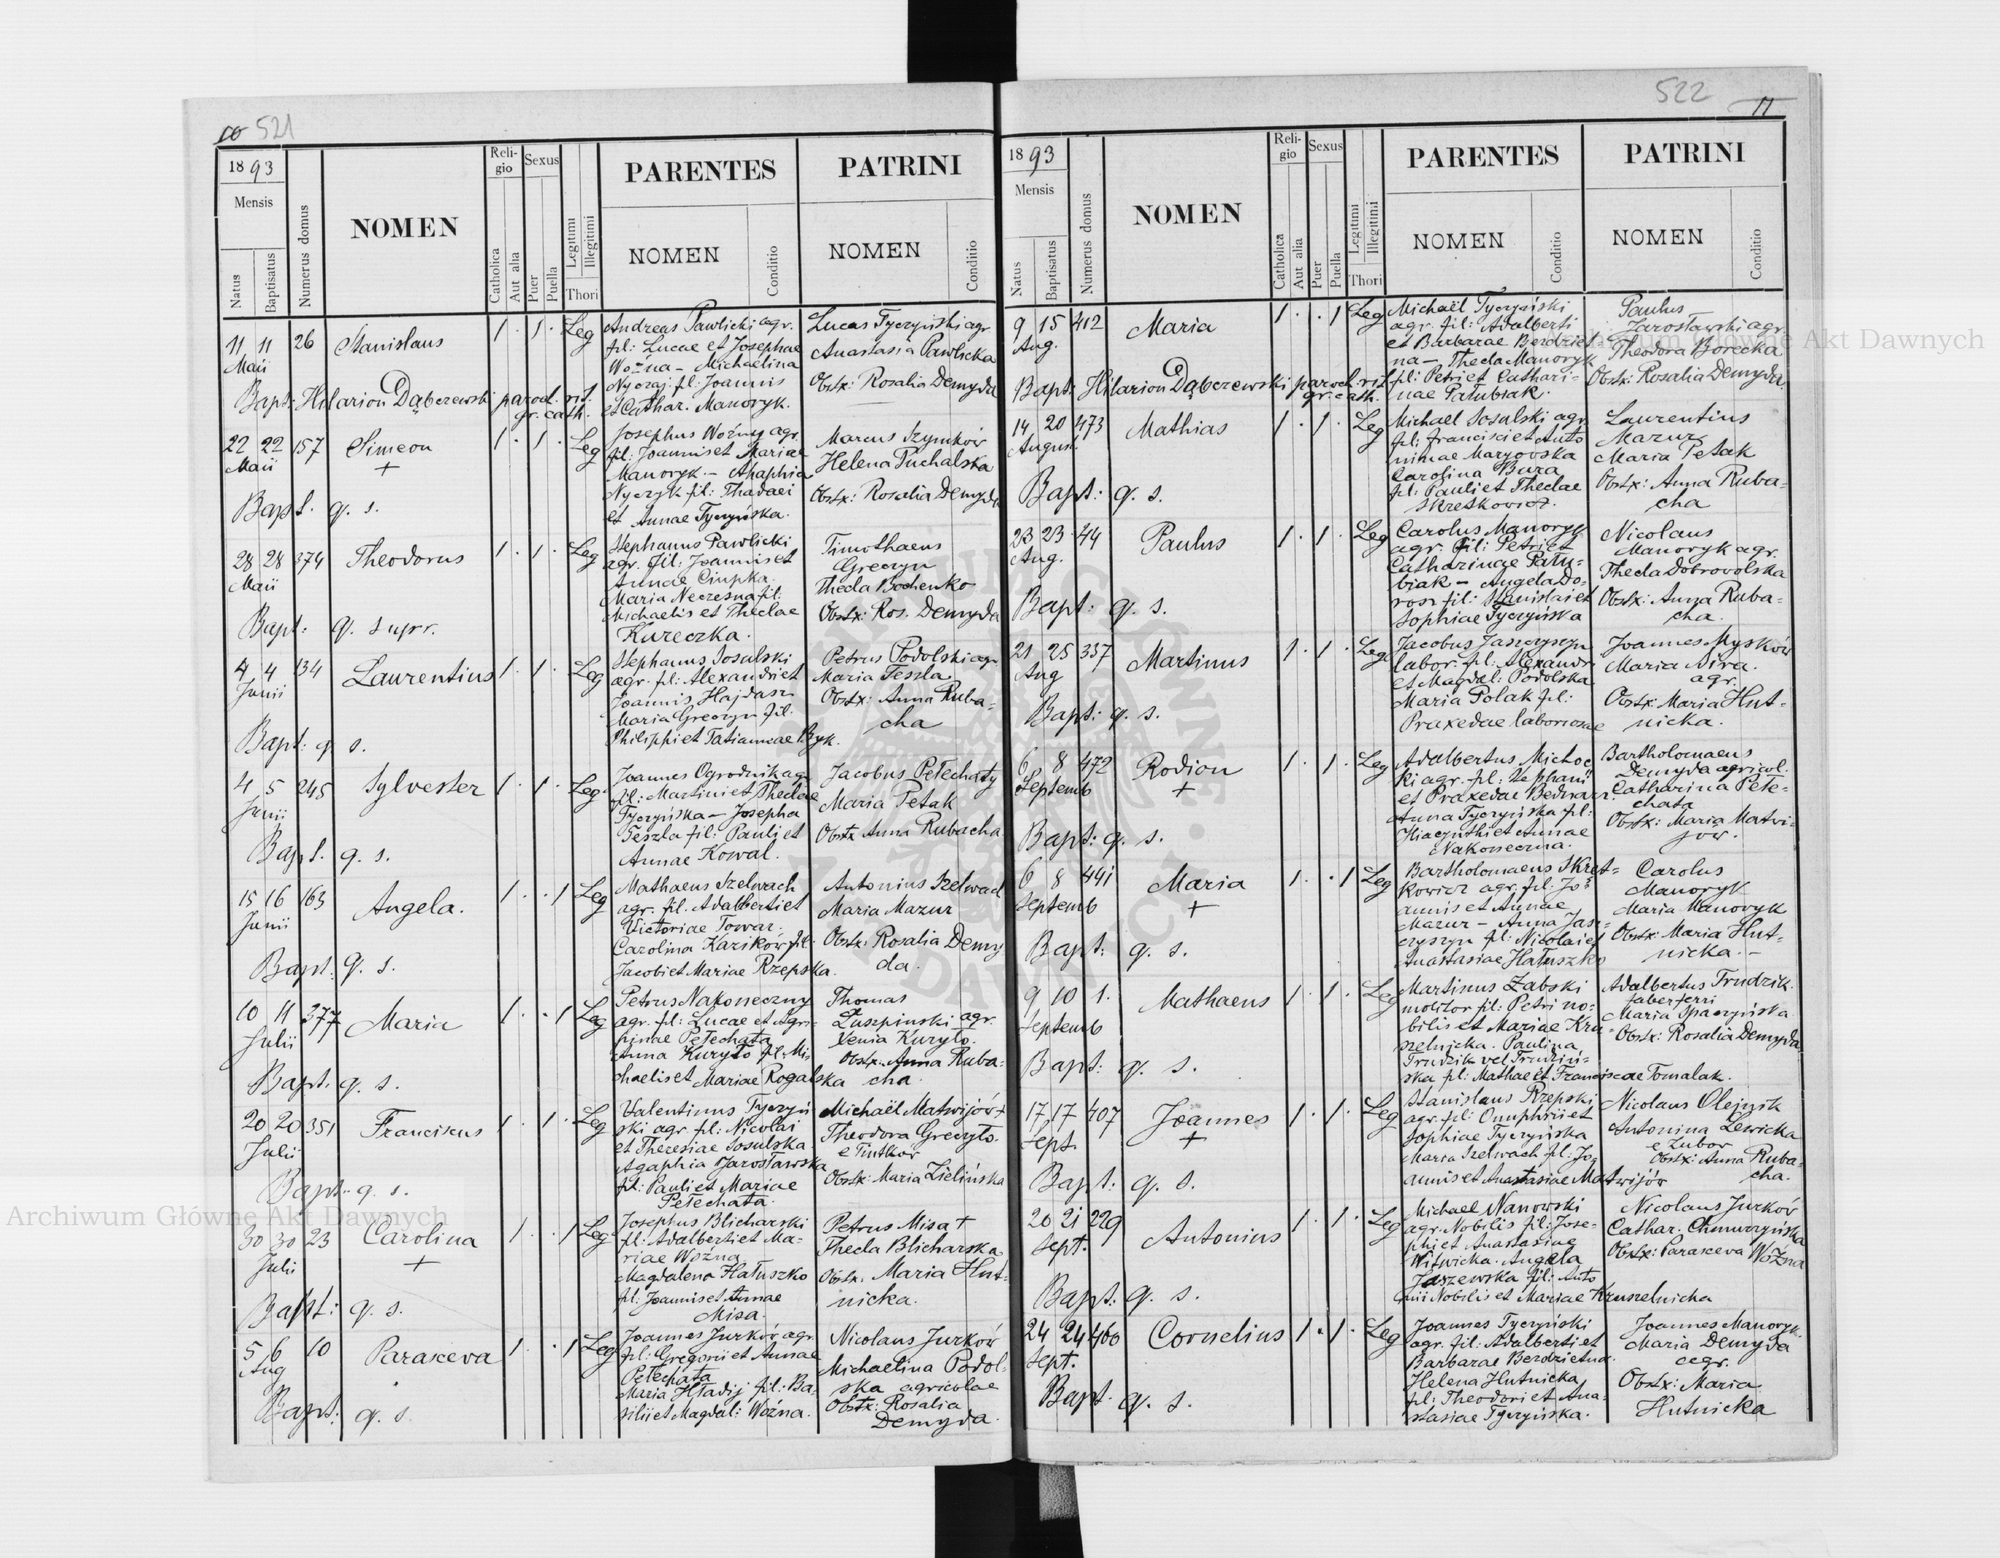 10 521
1893
Mensis
Natus
Baptisatus
Numerus domus
NOMEN
Reli-
gio
Catholica
Aut alia
Sexus
Puer
Puella
Legitimi
Illegitimi
Thori
PARENTES
NOMEN
Conditio
PATRINI
NOMEN
Conditio
11 11 26 Stanislaus 1 . 1 . Leg
Maii
Andreas Pawlicki agr.
fil: Lucae et Josephae
Woźna - Michaelina
Nyczaj fil: Joannis
et Cathar. Manoryk.
Lucas Tyczyński agr
Anastasia Pawlicka
Obstx: Rosalia Demyda
Bapt: Hilarion Dąbczewski paroch. rit.
gr. cath.
22 22 157 Simeon 1 . 1 . Leg
Maii +
Josephus Woźny agr.
fil: Joannis et Mariae
Manoryk - Ahaphia
Nyczyk fil: Thadaei
et Annae Tyczyńska.
Marcus Szymków
Helena Puchalska
Obstx: Rosalia Demyda
Bapt. q. s.
28 28 374 Theodorus 1 . 1 . Leg
Maii
Stephanus Pawlicki
agr. fil: Joannis et
Annae Ciupka.
Maria Neczesna fil:
Michaelis et Theclae
Kureczka.
Timothaeus
Greczyn
Thecla Bochenko
Obstx: Ros. Demyda
Bapt: q. supr.
4 4 134 Laurentius 1 . 1 . Leg
Junii
Stephanus Sosulski
agr. fil: Alexandri et
Joannis Hajdasz
Maria Greczyn fil.
Philiphi et Tatiannae Byk.
Petrus Podolski agr
Maria Teszla
Obstx: Anna Ruba-
cha
Bapt: q. s.
4 5 245 Sylvester 1 . 1 . Leg.
Junii
Joannes Ogrodnik agr
fil: Martini et Theclae
Tyczyńska - Josepha
Teszla fil: Pauli et
Annae Kowal.
Jacobus Pełechaty
Maria Petak
Obstx Anna Rubacha
Bapt. q. s.
15 16 163 Angela. 1 . . 1 Leg
Junii
Mathaeus Szelwach
agr. fil. Adalberti et
Victoriae Towar.
Carolina Karików fil.
Jacobi et Mariae Rzepska.
Antonius Szelwach
Maria Mazur
Obstx: Rosalia Demy
da.
Bapt: q. s.
10 11 377 Maria 1 . . 1 Leg
Julii
Petrus Nakoneczny
agr. fil: Lucae et Agri-
pinae Pełechata
Anna Kuryło fil: Mi-
chaelis et Mariae Rogalska
Thomas
Łuszpinski agr.
Xenia Kuryło.
Obstx. Anna Ruba-
cha.
Bapt. q. s.
20 20 351 Franciscus 1 . 1 . Leg
Julii
Valentinus Tyczyń
ski agr. fil: Nicolai
et Theresiae Sosulska
Agaphia Jarosławska
fil: Pauli et Mariae
Pełechata.
Michaël Matwijów +
Theodora Greczyło.
Obstx: Maria Zielińska
Bapt. q. s.
30 30 23 Carolina 1 . . 1 Leg
Julii +
Josephus Blicharski
fil: Adalberti et Ma-
riae Woźna
Magdalena Hałuszko
fil: Joannis et Annae
Misa.
Petrus Misa +
Thecla Blicharska
Obstx. Maria Hut-
nicka.
Bapt: q. s.
5 6 10 Parasceva 1 . . 1 Leg
Aug
Joannes Jurków agr.
fil: Gregorii et Annae
Pełechata
Maria Hładij fil: Ba-
silii et Magdal: Woźna.
Nicolaus Jurków
Michaelina Podol-
ska agricolae
Obstx: Rosalia
Demyda.
Bapt: q. s.
522 11
1893
Mensis
Natus
Baptisatus
Numerus domus
NOMEN
Reli-
gio
Catholica
Aut alia
Sexus
Puer
Puella
Legitimi
Illegitimi
Thori
PARENTES
NOMEN
Conditio
PATRINI
NOMEN
Conditio
9 15 412 Maria 1 . . 1 Leg
Aug.
Michaël Tyczyński
agr. fil: Adalberti
et Barbarae Berdziet-
na - Thecla Manoryk
fil: Petri et Cathari-
nae Pałubiak.
Paulus
Jarosławski agr.
Theodora Borecka
Obstx: Rosalia Demyda.
Bapt: Hilarion Dąbczewski paroch. rit.
gr. cath.
14 20 473 Mathias 1 . 1 . Leg
August.
Michael Sosulski agr.
fil: Francisci et Anto
ninae Mazyovska
Carolina Bura
fil: Pauli et Theclae
Skretkowicz.
Laurentius
Mazur
Maria Petak
Obstx: Anna Ruba-
cha
Bapt: q. s.
23 23 44 Paulus 1 . 1 . Leg
Aug.
Carolus Manoryk
agr. fil: Petri et
Catharinae Pału-
biak - Angela Do-
rosz fil: Stanislai et
Sophiae Tyczyńska
Nicolaus
Manoryk agr.
Thecla Dobrovolska
Obstx: Anna Ruba-
cha.
Bapt: q. s.
21 25 337 Martinus 1 . 1 . Leg.
Aug
Jacobus Jaszczyszyn
labor. fil: Alexandr
et Magdal: Podolska
Maria Polak fil:
Praxedae laboriosae
Joannes Mysków
Maria Sira.
agr.
Obstx: Maria Hut-
nicka.
Bapt: q. s.
6 8 472 Rodion 1 . 1 . Leg
Septemb +
Adalbertus Michoc
ki agr. fil: Stephani
et Praxedae Bednarz.
Anna Tyczyńska fil:
Hiacynthi et Annae
Nakoneczna.
Bartholomaeus
Demyda agricol.
Catharina Pełe-
chata
Obstx: Maria Matwi-
jow.
Bapt: q. s.
6 8 441 Maria 1 . . 1 Leg
Septemb +
Bartholomaeus Skręt-
kowicz agr. fil. Jo-
annis et Annae
Mazur - Anna Jasz-
czyszyn fil: Nicolai et
Anastasiae Hałuszko
Carolus
Manoryk
Maria Manoryk
Obstx: Maria Hut-
nicka. -
Bapt: q. s.
9 10 1. Mathaeus 1 . 1 . Leg
Septemb
Martinus Żabski
molitor fil: Petri no-
bilis et Mariae Kru-
szelnicka. Paulina
Trudzik vel Trudziń-
ska fil: Mathae et Franciscae Tomalak.
Adalbertus Trudzik.
faber ferri
Maria Spaczyńska
Obstx: Rosalia Demyda
Bapt: q. s.
17 17 407 Joannes 1 . 1 . Leg
Sept. +
Stanislaus Rzepski
agr. fil: Onuphrii et
Sophiae Tyczyńska
Maria Szelwach fil: Jo
annis et Anastasiae Matwijów
Nicolaus Olejnik
Antonina Lewicka
e Zubor
Obstx: Anna Ruba-
cha.
Bapt: q. s.
20 21 229 Antonius 1 . 1 . Leg
Sept.
Michael Nanowski
agr. Nobilis fil: Jose-
phi et Anastasiae
Witwicka. Angela
Jaszewska fil: Anto
nii Nobilis et Mariae Kruszelnicka
Nicolaus Jurków
Cathar. Chmurzyńska
Obstx: Parasceva Woźna
Bapt: q. s.
24 24 460 Cornelius 1 . 1 . Leg
Sept.
Joannes Tyczyński
agr. fil: Adalberti et
Barbarae Berdzietna.
Helena Hutnicka
fil: Theodori et Ana-
stasiae Tyczyńska.
Joannes Manoryk.
Maria Demyda
agr.
Obstx: Maria
Hutnicka
Bapt. q. s.
Archiwum Główne Akt Dawnych
Archiwum Główne Akt Dawnych
ARCHIWUM GŁÓWNE AKT DAWNYCH